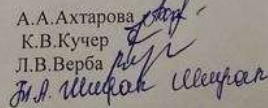 А.А.Ахтарова
К.В.Кучер
Л.В.Верба
Шифрак Шифрак